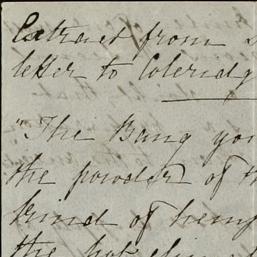 Extract from
letter to Coleridg
"The Bang you
the powder of th
kind of hemp
the hot